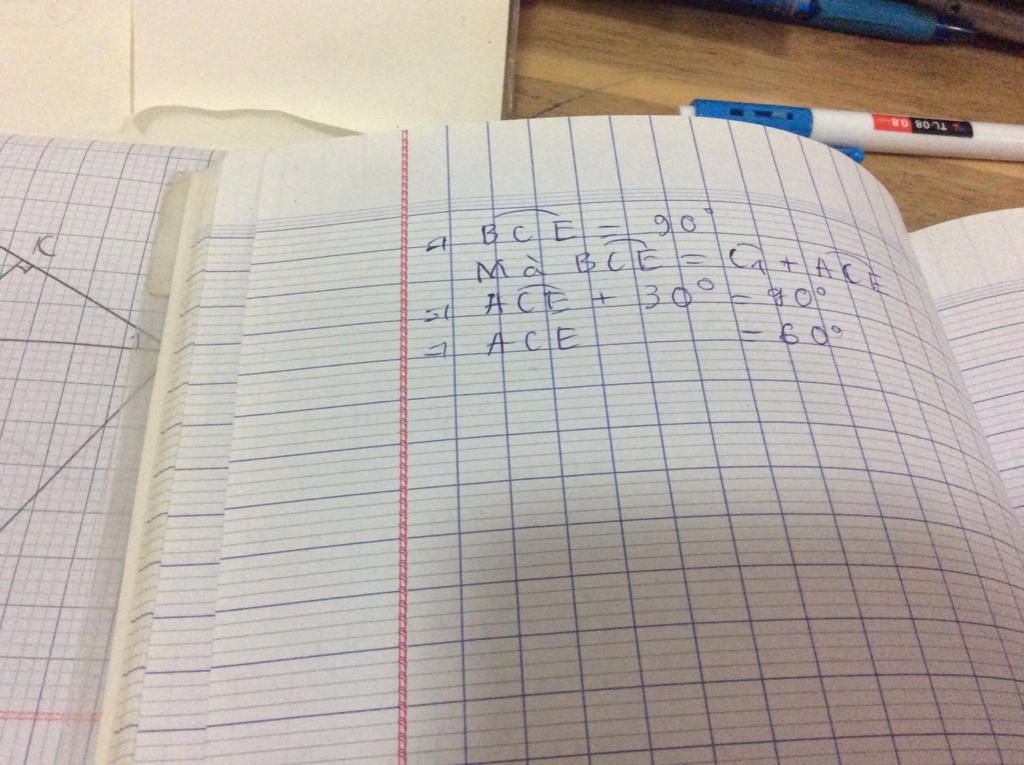 K
1
⇒ BCE = 90°
Mà BCE = C1 + ACE
⇒ ACE + 30° = 90°
⇒ ACE = 60°
TL-08 0.8